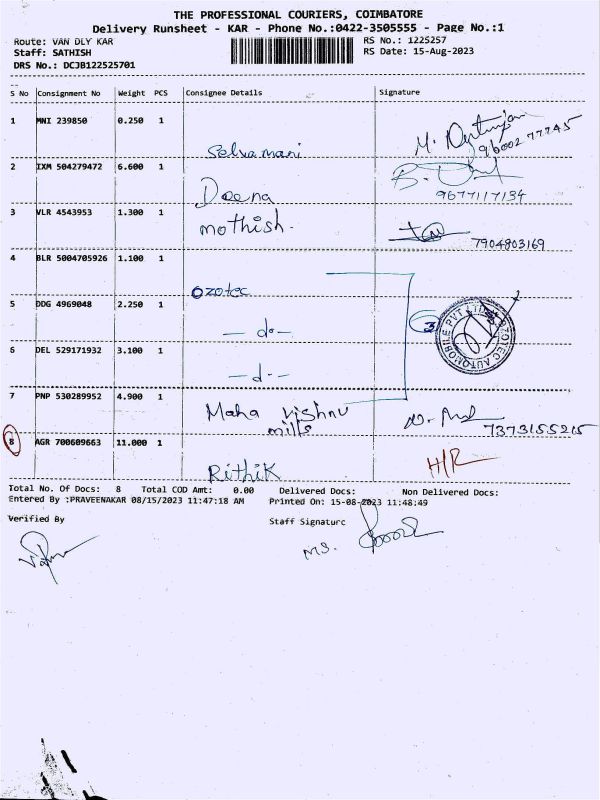 THE PROFESSIONAL COURIERS, COIMBATORE
Delivery Runsheet - KAR - Phone No.:0422-3505555 - Page No.:1
Route: VAN DLY KAR RS No.: 1225257
Staff: SATHISH RS Date: 15-Aug-2023
DRS No.: DCJB122525701
S No Consignment No Weight PCS Consignee Details Signature
1 MNI 239850 0.250 1
Selvamani M. 9600277745
2 IXM 504279472 6.600 1
Deena 9677117134
3 VLR 4543953 1.300 1
mothish. 7904803169
4 BLR 5004705926 1.100 1
Ozotec
5 DDG 4969048 2.250 1
— do — 3
OZOTEC AUTOMOBILE PVT LTD
6 DEL 529171932 3.100 1
— d. —
7 PNP 530289952 4.900 1
Maha Vishnu
mills 7373155215
8 AGR 700609663 11.000 1
Rithik H/R
Total No. Of Docs: 8 Total COD Amt: 0.00 Delivered Docs: Non Delivered Docs:
Entered By :PRAVEENAKAR 08/15/2023 11:47:18 AM Printed On: 15-08-2023 11:48:49
Verified By Staff Signature
Ms.